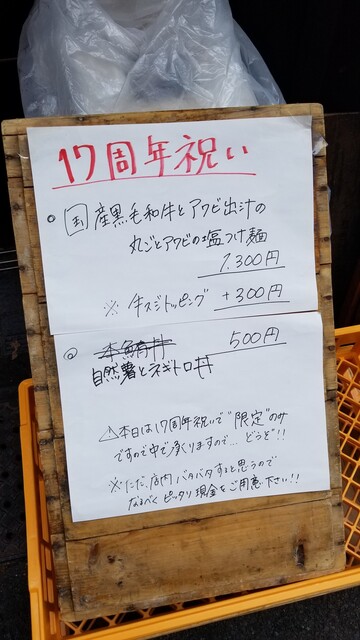 17周年祝い
◎国産黒毛和牛とアワビ出汁の
丸ごとアワビの塩つけ麺
1.300円
※牛スジトッピング +300円
◎本鮪丼 500円
自然薯とネギトロ丼
⚠本日は17周年祝いで"限定"のみ
ですので中で承りますので…どうぞ!!
※ただ、店内バタバタすると思うので
なるべくピッタリ現金をご用意下さい!!